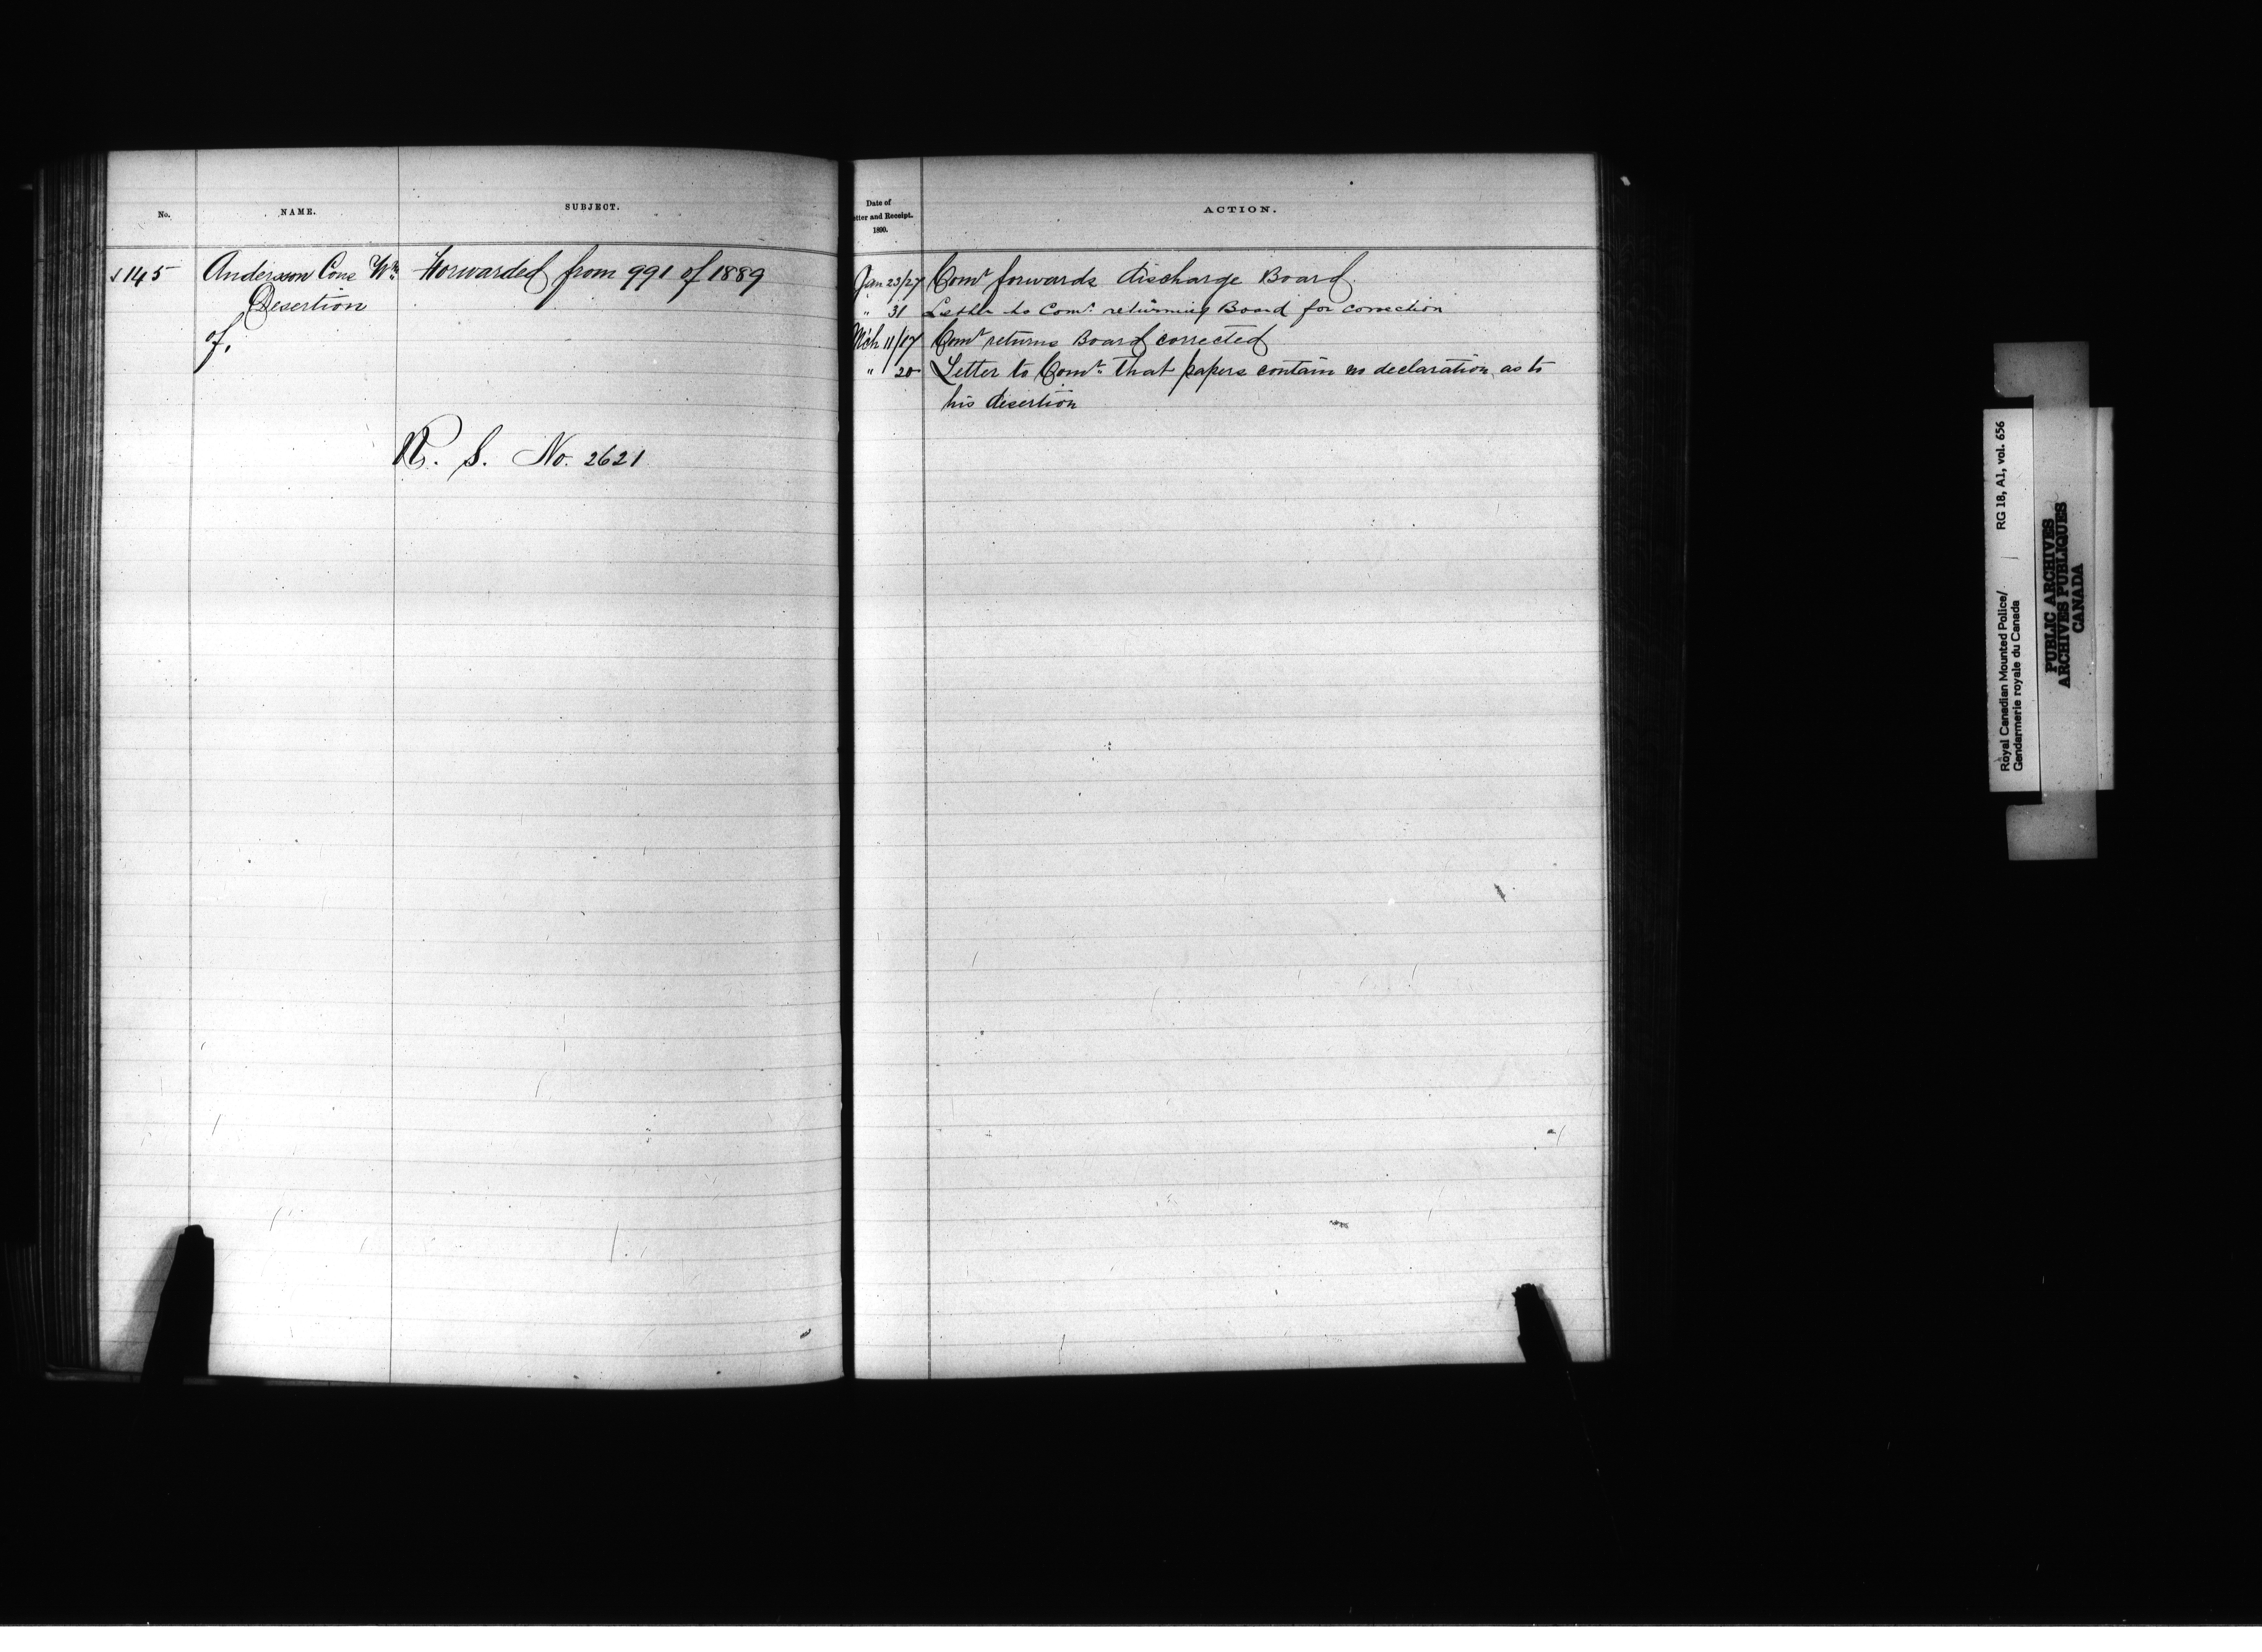 No.
NAME.
SUBJECT.
145
Anderson Cons Wm
Forwarded from 991 of 1889
Desertion
of.
R. S. No. 2621
Date of
etter and Receipt.
1890.
ACTION.
Jan 23/27 Comr forwards discharge Board
" 31 Letter to Comr. returning Board for correction
Mch 11/17 Comr returns Board corrected
" 20 Letter to Comr. that papers contain no declaration as to
his desertion
Royal Canadian Mounted Police/ RG 18, A1, vol. 656
Gendarmerie royale du Canada
PUBLIC ARCHIVES
ARCHIVES PUBLIQUES
CANADA